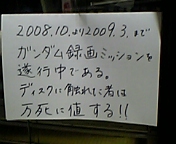 2008.10.より2009.3.まで
ガンダム録画ミッションを
遂行中である。
ディスクに触れた者は
万死に値する!!